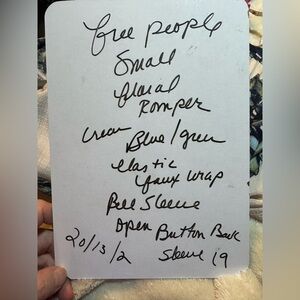 free people
Small
floral
Romper
Cream
Blue/green
elastic
faux wrap
Bell Sleeve
open Button Back
20/13/2 Sleeve 19